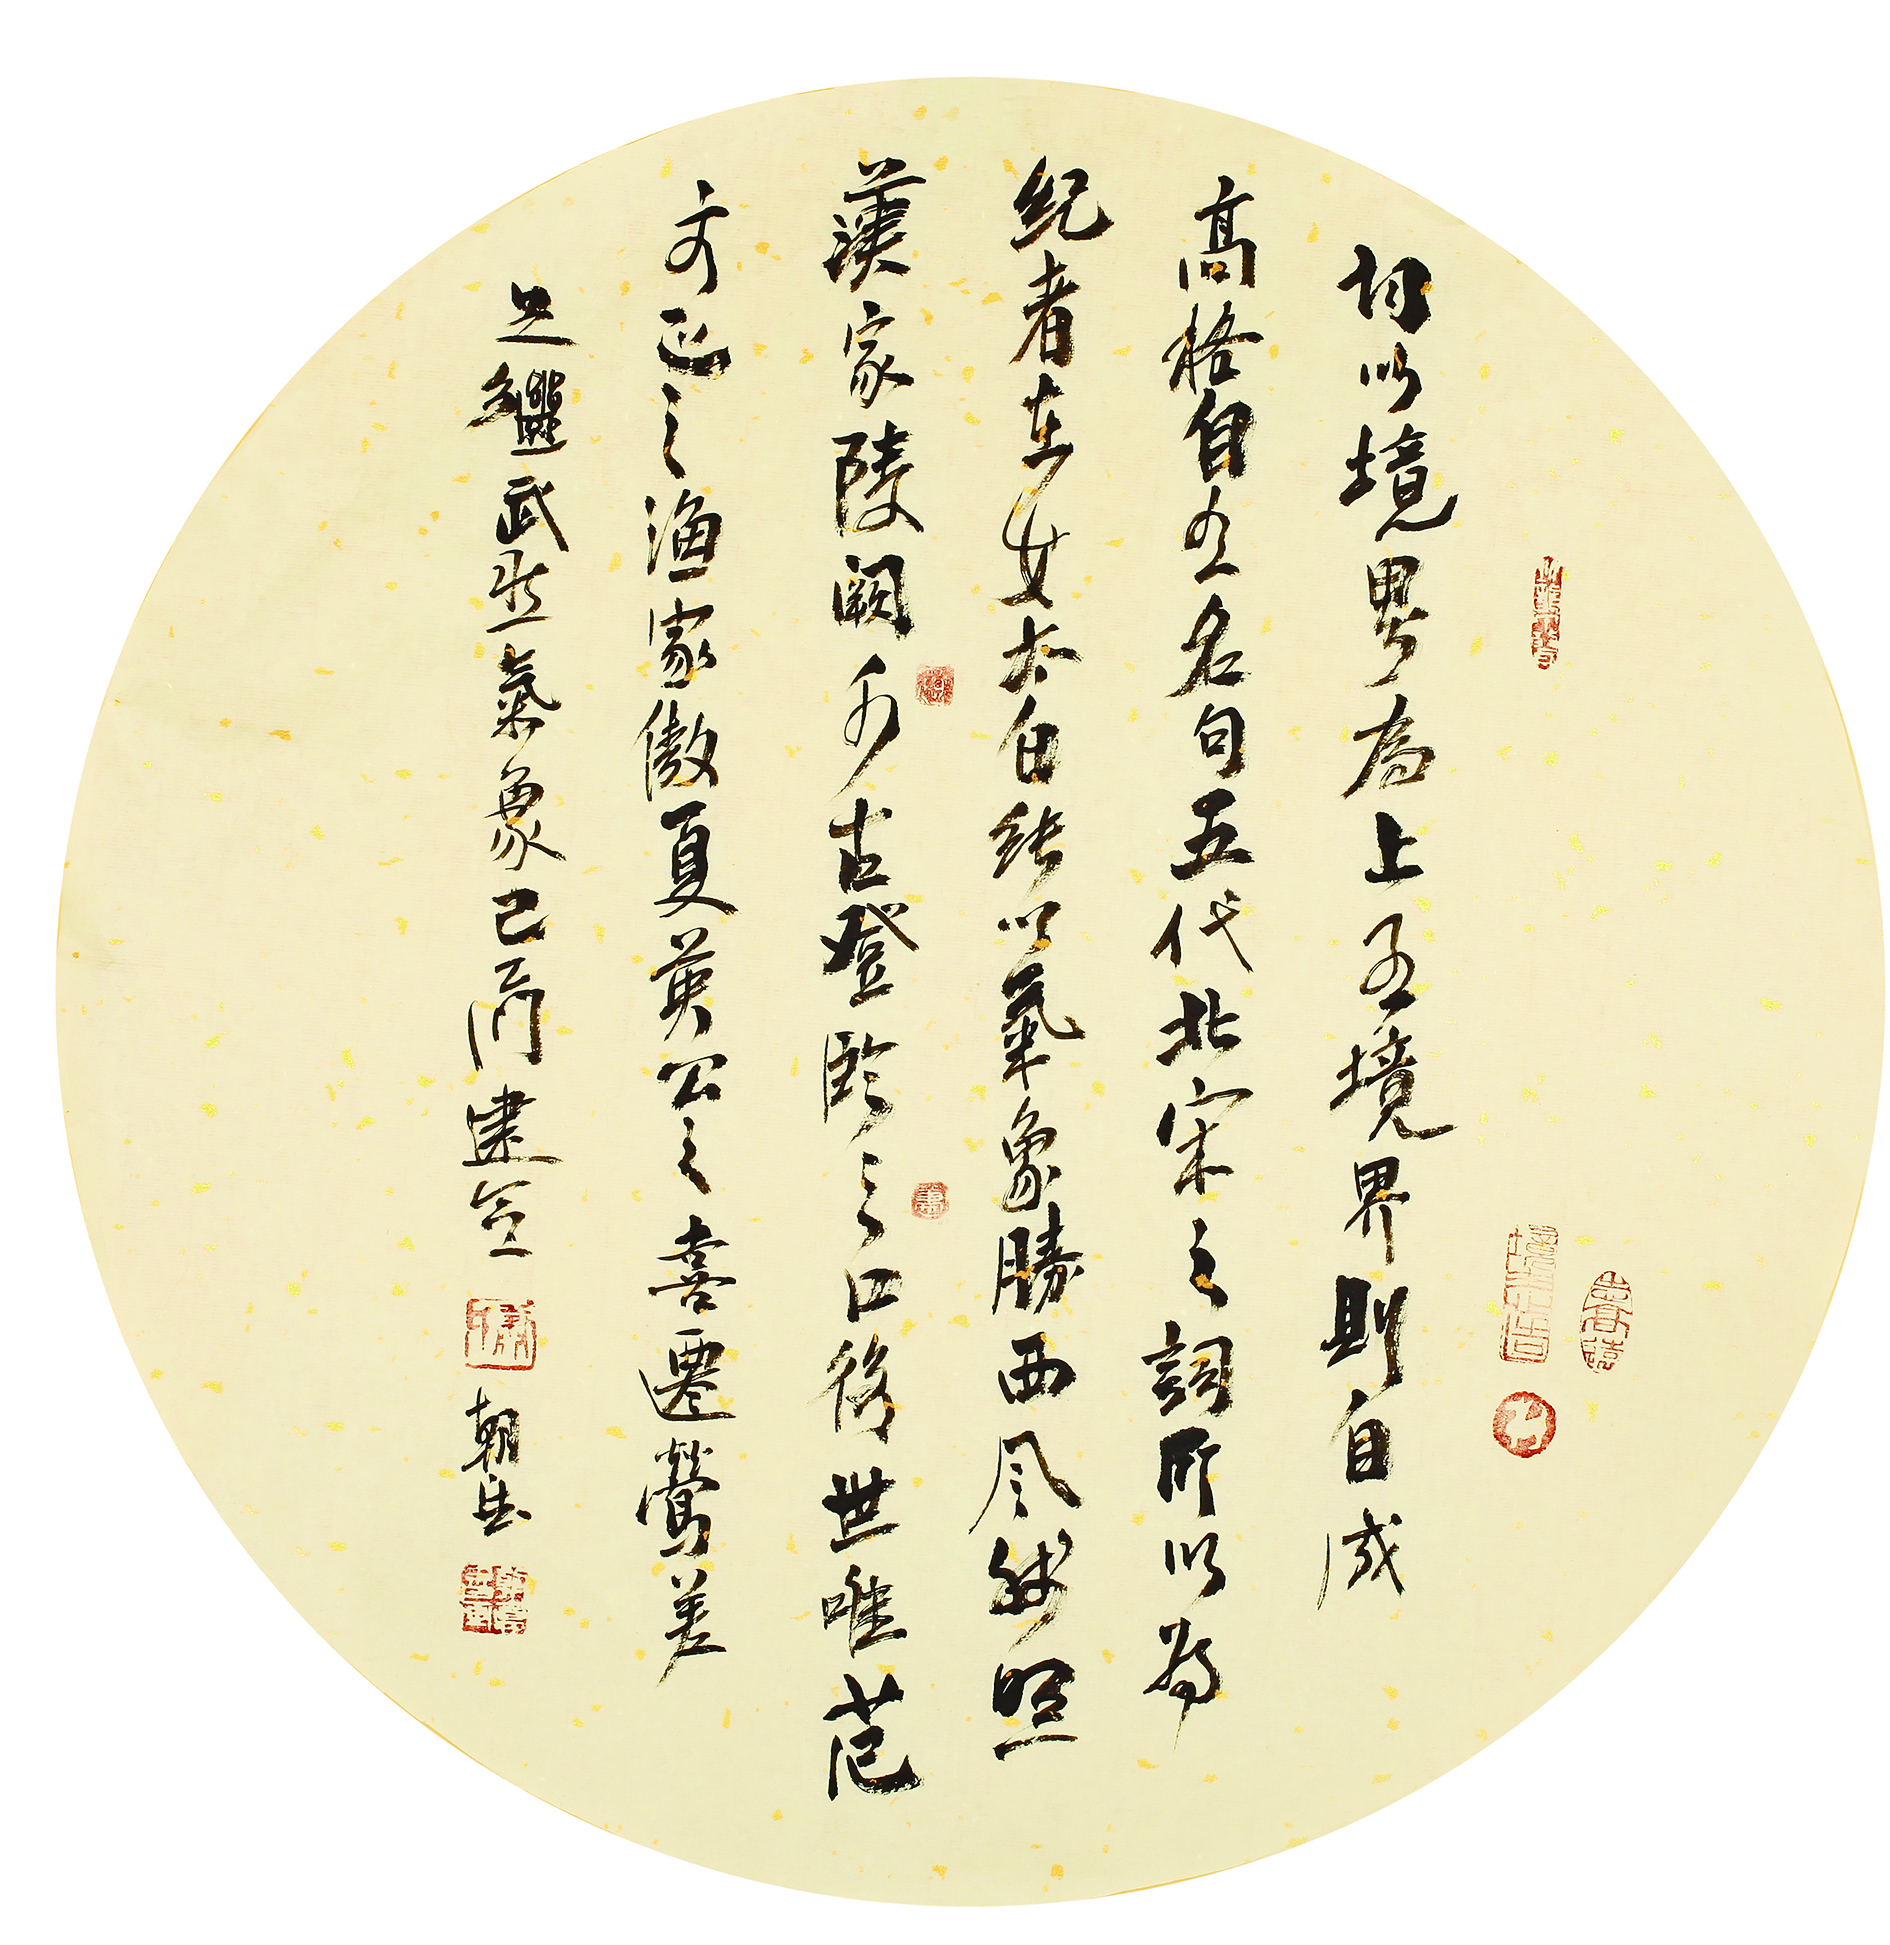 词以境界為上有境界則自成
高格自有名句五代北宋之詞所以為
絕者在此太白純以氣象勝西風殘照
漢家陵闕千古登臨之口後世唯范
文正之漁家傲夏英公之喜遷鶯差
足繼武然氣象已